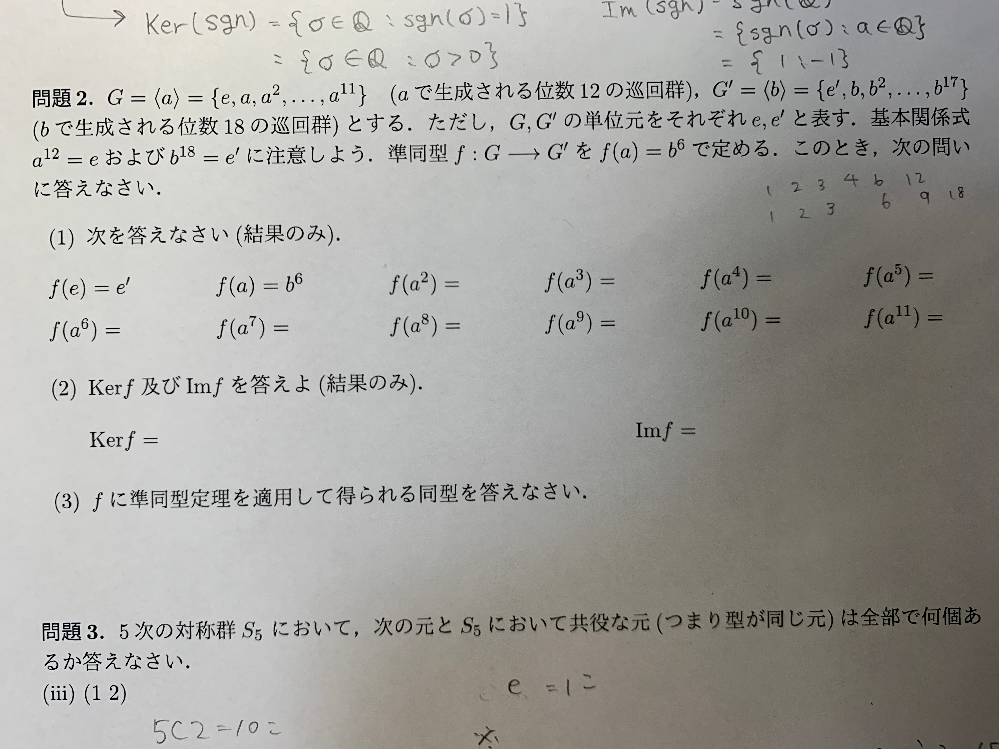 Ker(sgn) = {σ∈Q : sgn(σ)=1}
= {σ∈Q : σ>0}
Im(sgn) = sgn(Q)
= {sgn(σ) : a∈Q}
= {1、-1}
問題 2. G = ⟨a⟩ = {e, a, a², . . . , a¹¹} (a で生成される位数 12 の巡回群), G′ = ⟨b⟩ = {e′, b, b², . . . , b¹⁷}
(b で生成される位数 18 の巡回群) とする．ただし，G, G′ の単位元をそれぞれ e, e′ と表す．基本関係式
a¹² = e および b¹⁸ = e′ に注意しよう．準同型 f : G ⟶ G′ を f(a) = b⁶ で定める．このとき，次の問い
に答えなさい．
1 2 3 4 6 12
1 2 3 6 9 18
(1) 次を答えなさい (結果のみ)．
f(e) = e′ f(a) = b⁶ f(a²) = f(a³) = f(a⁴) = f(a⁵) =
f(a⁶) = f(a⁷) = f(a⁸) = f(a⁹) = f(a¹⁰) = f(a¹¹) =
(2) Kerf 及び Imf を答えよ (結果のみ)．
Kerf = Imf =
(3) f に準同型定理を適用して得られる同型を答えなさい．
問題 3. 5 次の対称群 S₅ において，次の元と S₅ において共役な元 (つまり型が同じ元) は全部で何個あ
るか答えなさい．
(iii) (1 2)
e = 1こ
5C2=10こ